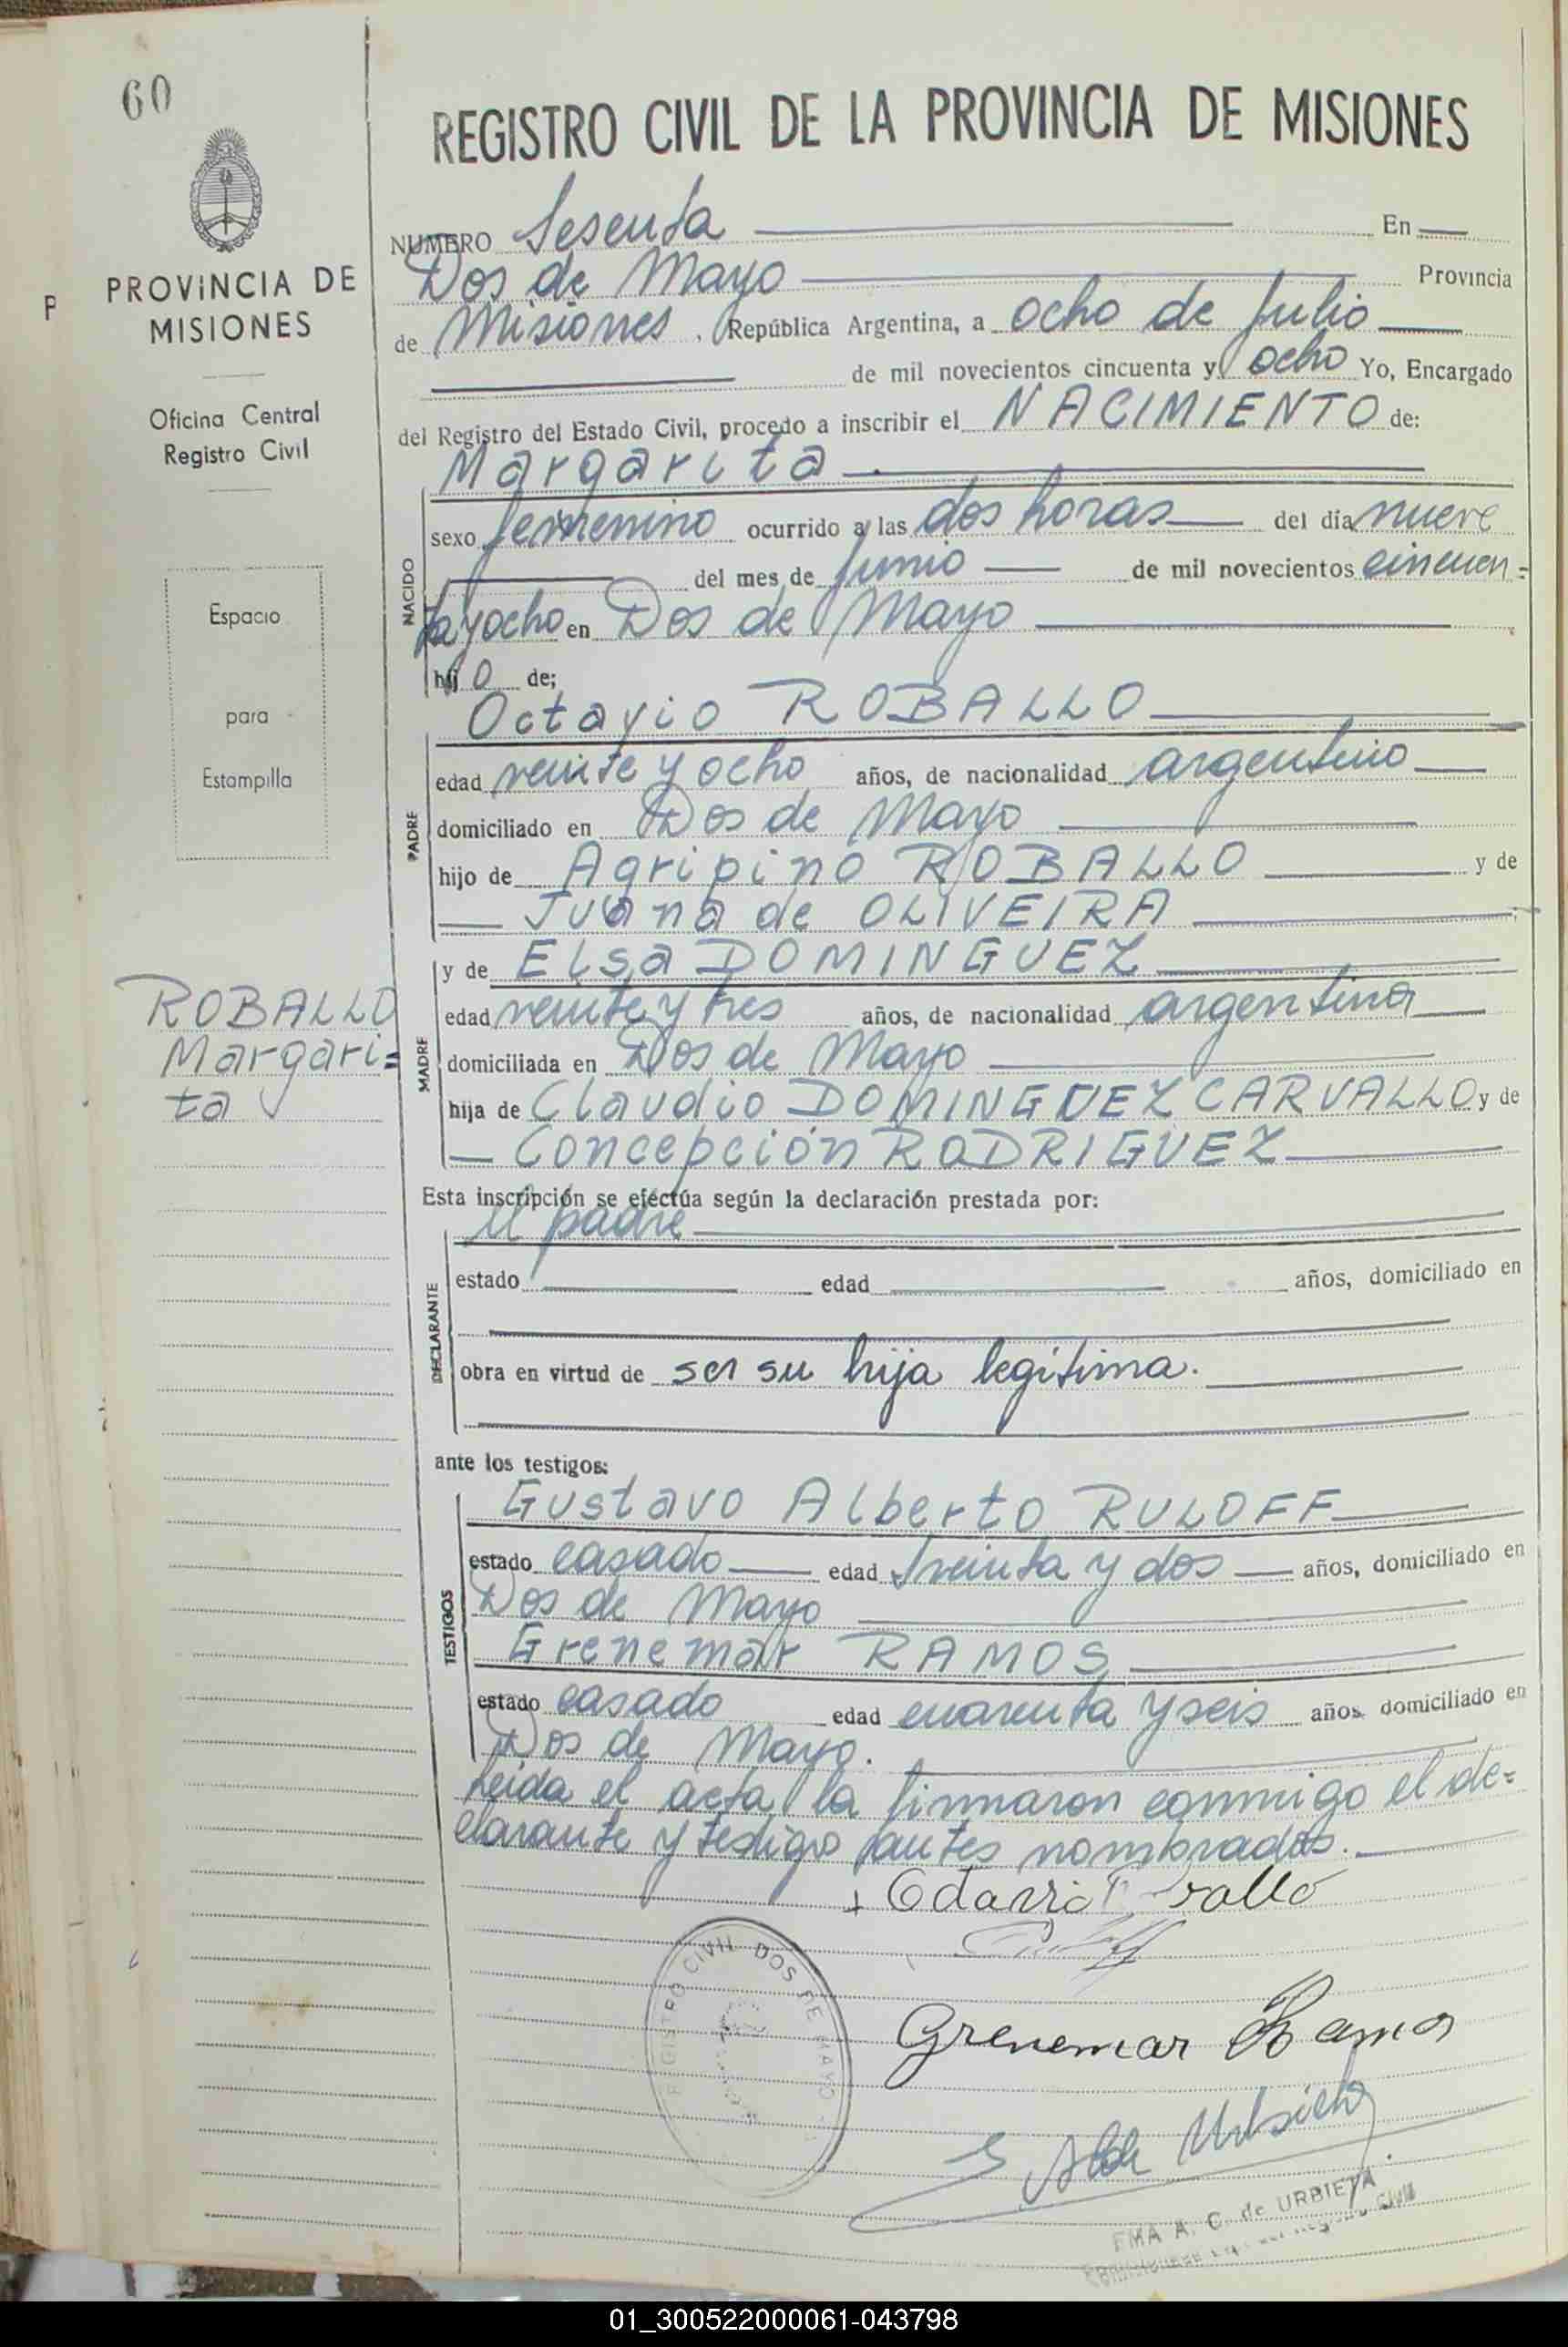 60
P
PROVINCIA DE
MISIONES
Oficina Central
Registro Civil
Espacio
para
Estampilla
ROBALLO
Margari=
ta
REGISTRO CIVIL DE LA PROVINCIA DE MISIONES
NUMERO Sesenta En
Dos de Mayo Provincia
de Misiones, República Argentina, a ocho de Julio
de mil novecientos cincuenta y ocho Yo, Encargado
del Registro del Estado Civil, procedo a inscribir el NACIMIENTO de:
Margarita
NACIDO
sexo femenino ocurrido a las dos horas del día nueve
del mes de Junio de mil novecientos cincuen=
ta y ocho en Dos de Mayo
hijo de;
Octavio ROBALLO
PADRE
edad veinte y ocho años, de nacionalidad argentino
domiciliado en Dos de Mayo
hijo de Agripino ROBALLO y de
Juana de OLIVEIRA
y de Elsa DOMINGUEZ
MADRE
edad veinte y tres años, de nacionalidad argentina
domiciliada en Dos de Mayo
hija de Claudio DOMINGUEZ CARVALLO y de
Concepción RODRIGUEZ
Esta inscripción se efectúa según la declaración prestada por:
el padre
DECLARANTE
estado edad años, domiciliado en
obra en virtud de ser su hija legítima.
ante los testigos:
Gustavo Alberto RULOFF
TESTIGOS
estado casado edad treinta y dos años, domiciliado en
Dos de Mayo
Grenemar RAMOS
estado casado edad cuarenta y seis años domiciliado en
Dos de Mayo.
Leida el acta la firmaron conmigo el de=
clarante y testigo antes nombrados.
REGISTRO CIVIL DOS DE MAYO
Grenemar Ramos
EMA A. C. de URBIETA
01_300522000061-043798